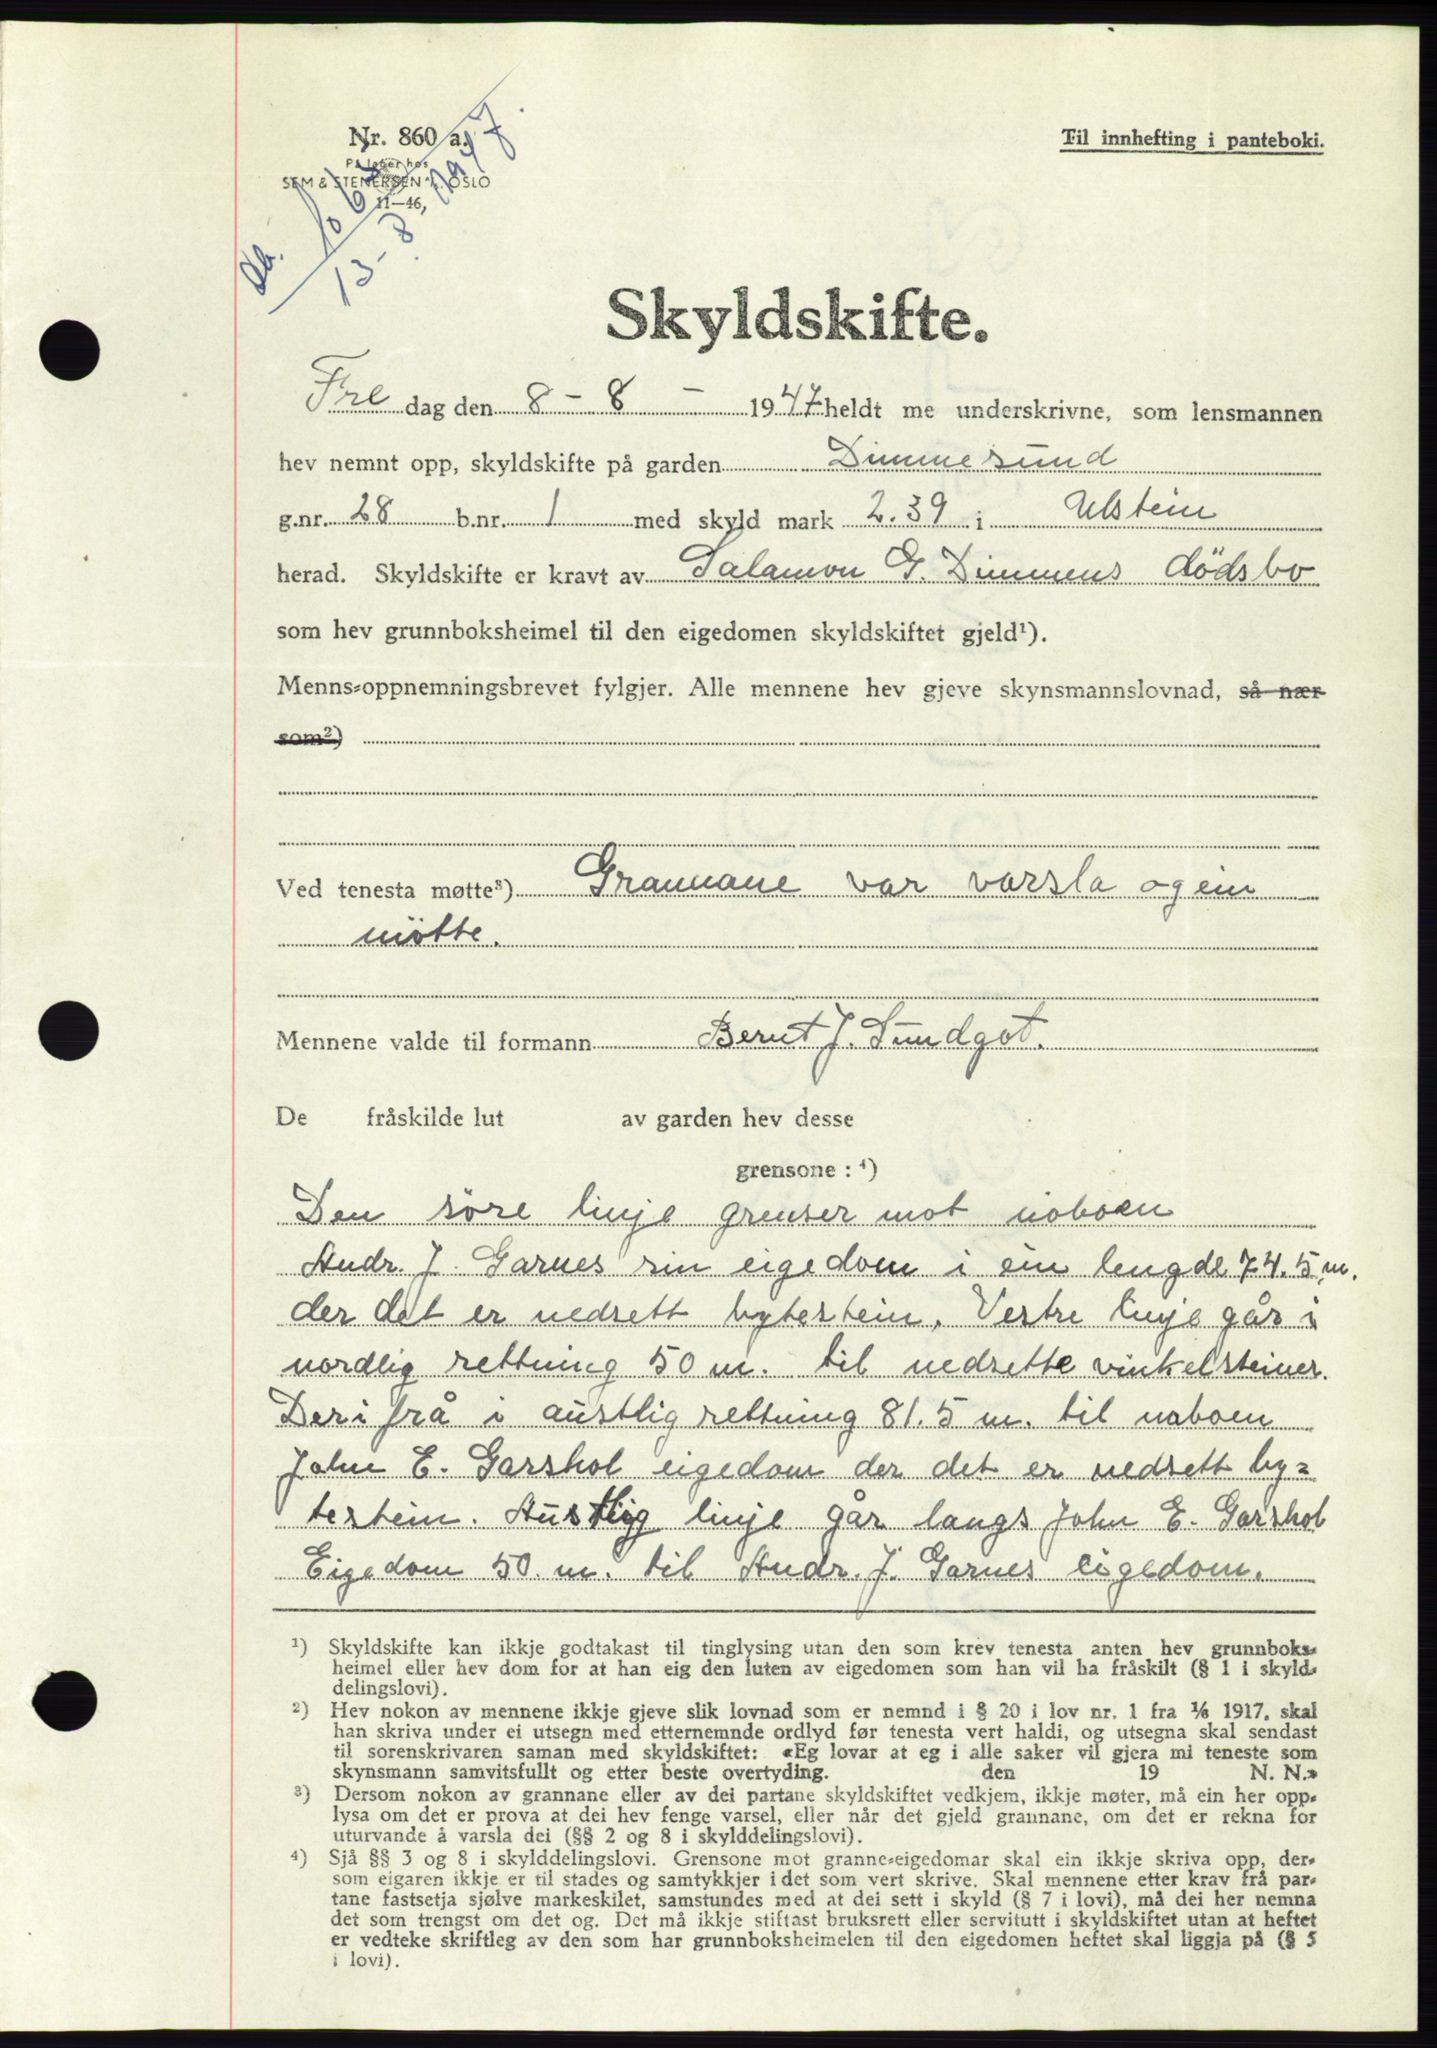 Nr. 860 a.
På lager hos
SEM & STENERSEN A/S, OSLO
11—46.
Til innhefting i panteboki.
Db.
13-8 1947.
Skyldskifte.
Fre dag den 8 - 8 - 1947 heldt me underskrivne, som lensmannen
hev nemnt opp, skyldskifte på garden Dimmesund
g.nr. 28 b.nr. 1 med skyld mark 2.39 i Ulstein
herad. Skyldskifte er kravt av Salamon G. Dimmens dödsbo
som hev grunnboksheimel til den eigedomen skyldskiftet gjeld¹).
Menns-oppnemningsbrevet fylgjer. Alle mennene hev gjeve skynsmannslovnad, så nær
som²)
Ved tenesta møtte³) Grannane var varsla og ein
mötte.
Mennene valde til formann Bernt J. Sundgot.
De fråskilde lut av garden hev desse
grensone : ⁴)
Den söre linje grenser mot naboen
Andr. J. Garnes sin eigedom i ein lengde 74.5 m.
der det er nedsett bytestein. Vestre linje går i
nordlig rettning 50 m. til nedsette vinkelsteiner.
Deri frå i austlig rettning 81.5 m. til naboen
John E. Garshol eigedom der det er nedsett by=
testein. Austlig linje går langs John E. Garshol
Eigedom 50. m. til Andr. J. Garnes eigedom.
¹) Skyldskifte kan ikkje godtakast til tinglysing utan den som krev tenesta anten hev grunnboks-
heimel eller hev dom for at han eig den luten av eigedomen som han vil ha fråskilt (§ 1 i skyld-
delingslovi).
²) Hev nokon av mennene ikkje gjeve slik lovnad som er nemnd i § 20 i lov nr. 1 fra 1/6 1917, skal
han skriva under ei utsegn med etternemnde ordlyd før tenesta vert haldi, og utsegna skal sendast
til sorenskrivaren saman med skyldskiftet: «Eg lovar at eg i alle saker vil gjera mi teneste som
skynsmann samvitsfullt og etter beste overtyding. den 19 N. N.»
³) Dersom nokon av grannane eller av dei partane skyldskiftet vedkjem, ikkje møter, må ein her opp-
lysa om det er prova at dei hev fenge varsel, eller når det gjeld grannane, om det er rekna for
uturvande å varsla dei (§§ 2 og 8 i skylddelingslovi).
⁴) Sjå §§ 3 og 8 i skylddelingslovi. Grensone mot granne-eigedomar skal ein ikkje skriva opp, der-
som eigaren ikkje er til stades og samtykkjer i det som vert skrive. Skal mennene etter krav frå par-
tane fastsetja sjølve markeskilet, samstundes med at dei sett i skyld (§ 7 i lovi), må dei her nemna
det som trengst om det og. Det må ikkje stiftast bruksrett eller servitutt i skyldskiftet utan at heftet
er vedteke skriftleg av den som har grunnboksheimelen til den eigedomen heftet skal liggja på (§ 5
i lovi).